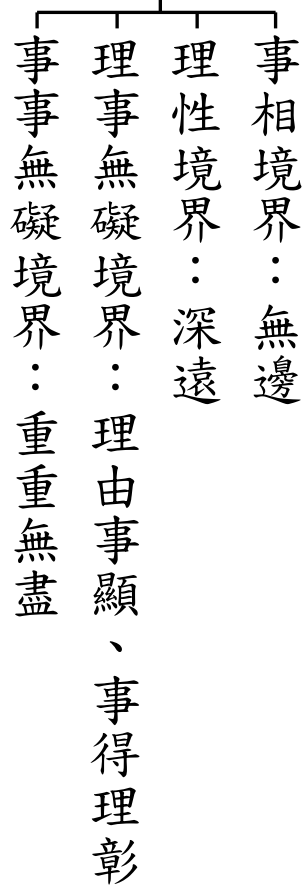 事相境界：無邊
理性境界：深遠
理事無礙境界：理由事顯、事得理彰
事事無礙境界：重重無盡